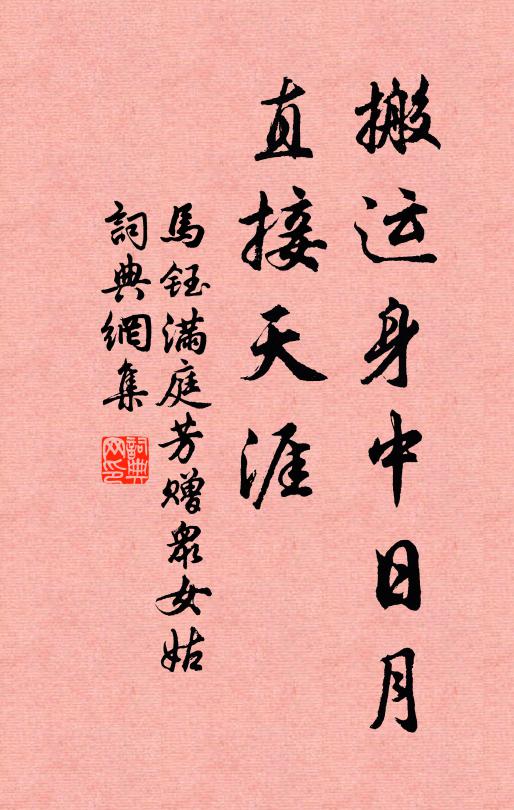 搬运身中日月
直接天涯
馬鈺满庭芳赠眾女姑
詞典網集
詞典網印